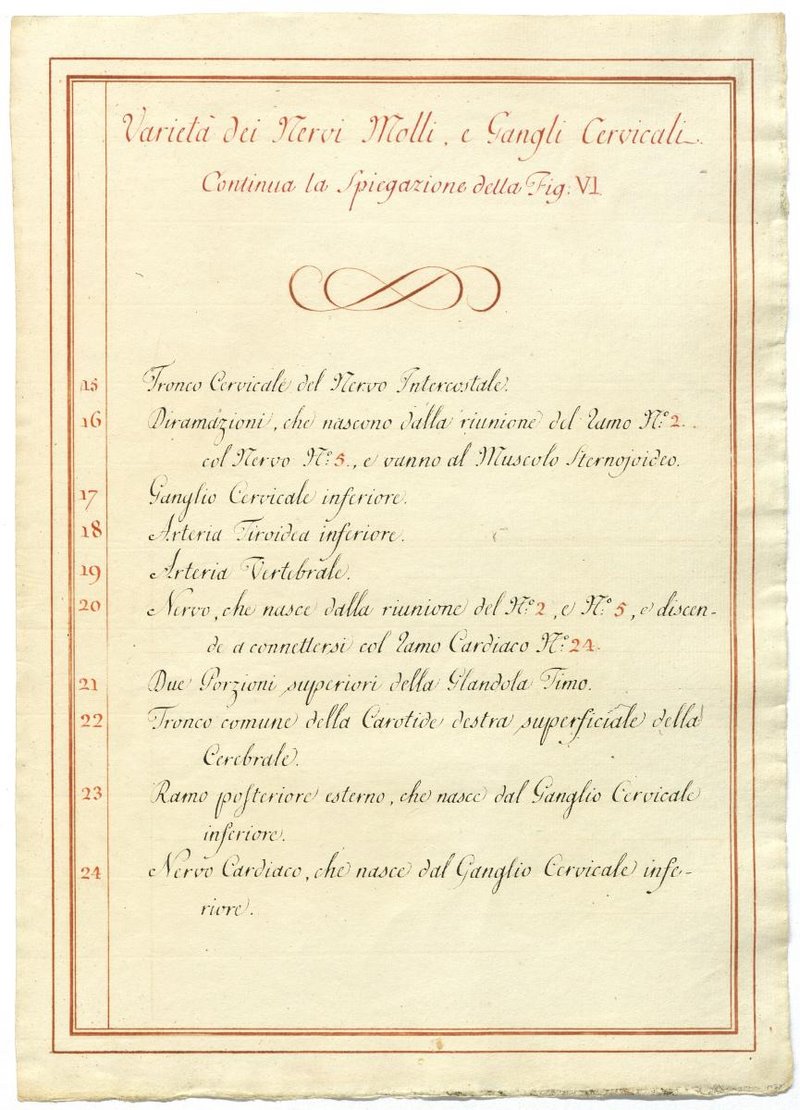 Varietà dei Nervi Molli, e Gangli Cervicali.
Continua la Spiegazione della Fig: VI.
15 Tronco Cervicale del Nervo Intercostale.
16 Diramazioni, che nascono dalla riunione del ramo N.º 2.
col Nervo N.º 5., e vanno al Muscolo Sternojoideo.
17 Ganglio Cervicale inferiore.
18 Arteria Tiroidea inferiore.
19 Arteria Vertebrale.
20 Nervo, che nasce dalla riunione del N.º 2, e N.º 5, e discen-
de a connettersi col ramo Cardiaco N.º 24.
21 Due Porzioni superiori della Glandola Timo.
22 Tronco comune della Carotide destra superficiale della
Cerebrale.
23 Ramo posteriore esterno, che nasce dal Ganglio Cervicale
inferiore.
24 Nervo Cardiaco, che nasce dal Ganglio Cervicale infe-
riore.